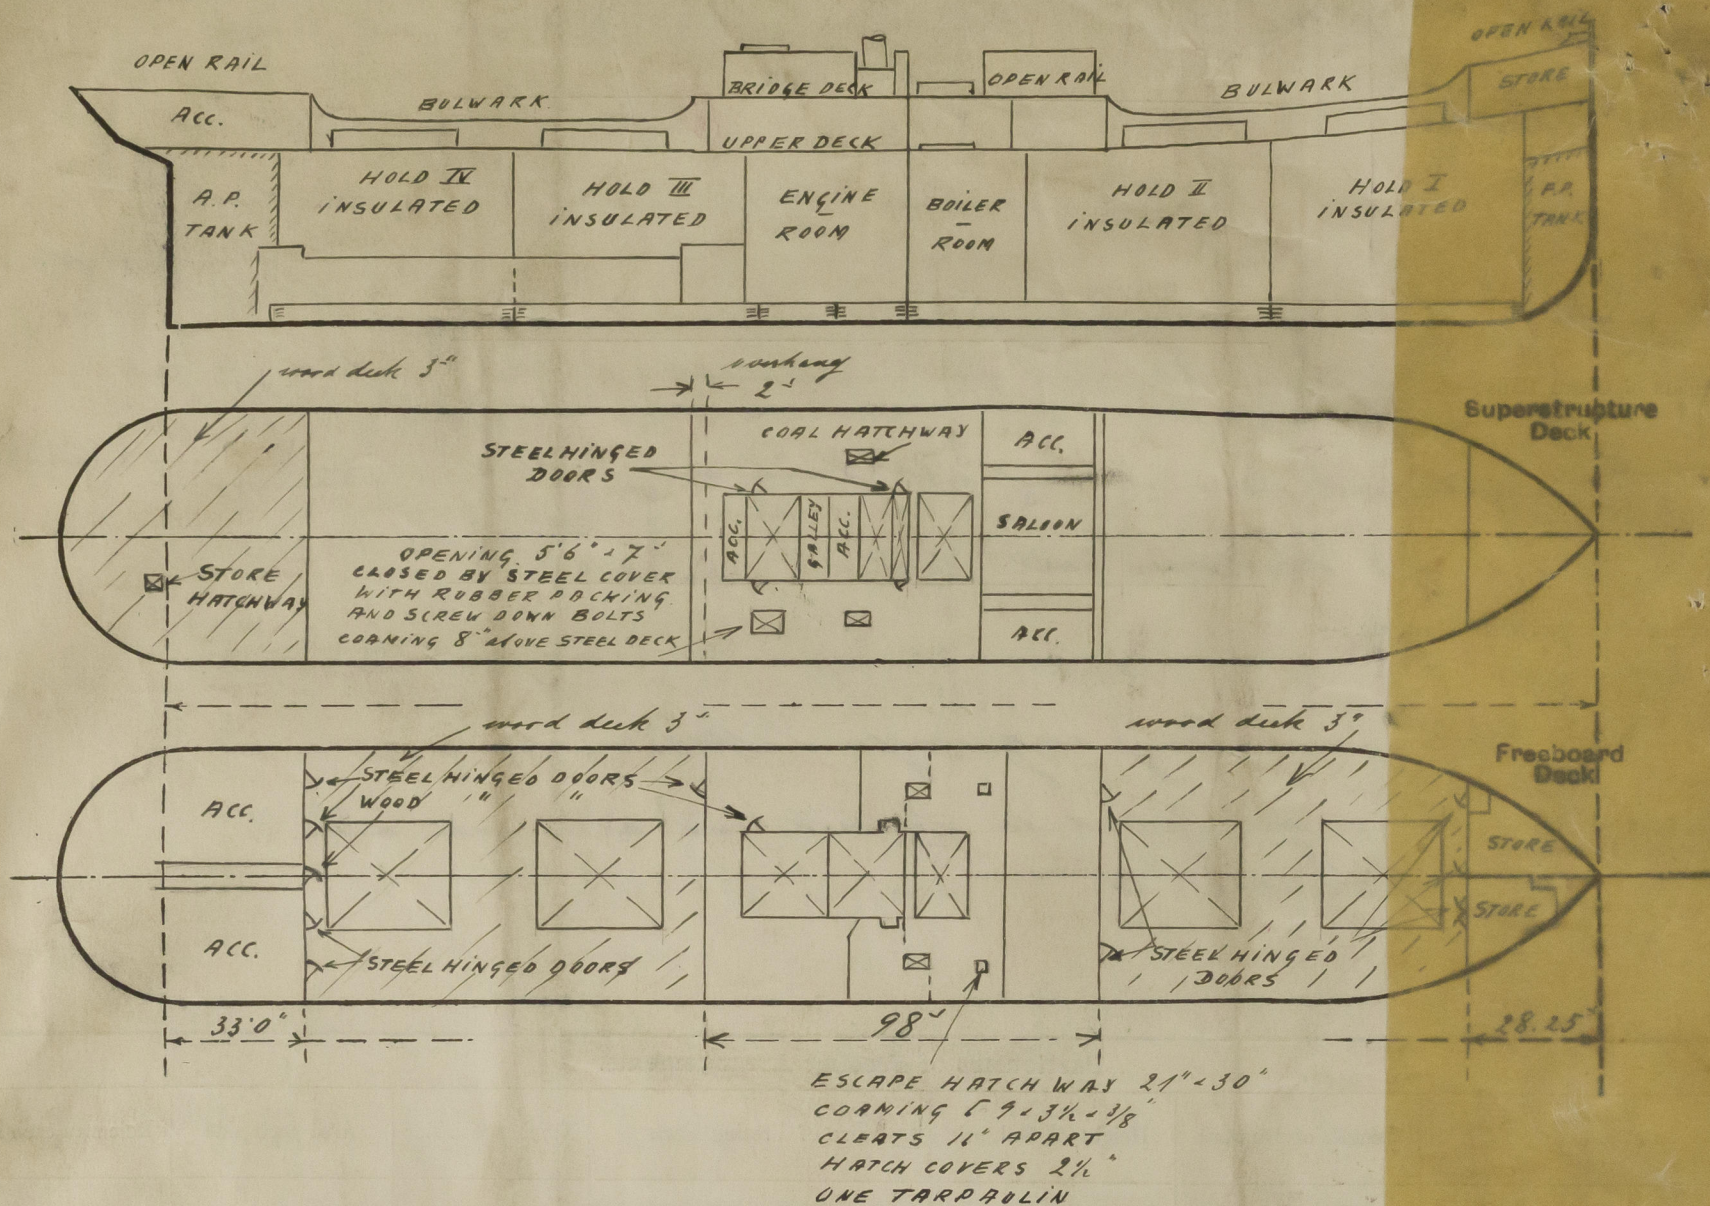 OPEN RAIL
BULWARK
BRIDGE DECK
OPEN RAIL
BULWARK
OPEN RAIL
STORE
ACC.
UPPER DECK
A.P.
TANK
HOLD IV
INSULATED
HOLD III
INSULATED
ENGINE
ROOM
BOILER
ROOM
HOLD II
INSULATED
HOLD I
INSULATED
F.P.
TANK
wood deck 3"
overhang
2'
Superstructure
Deck
STEEL HINGED
DOORS
COAL HATCHWAY
ACC.
SALOON
ACC.
ACC.
GALLEY
ACC.
STORE
HATCHWAY
OPENING 5'6" × 7'
CLOSED BY STEEL COVER
WITH RUBBER PACKING
AND SCREW DOWN BOLTS
COAMING 8" above STEEL DECK
wood deck 3"
wood deck 3"
Freeboard
Deck
STEEL HINGED DOORS
WOOD " "
ACC.
ACC.
STORE
STORE
STEEL HINGED DOORS
STEEL HINGED
DOORS
33'0"
98'
28.25'
ESCAPE HATCHWAY 21" × 30"
COAMING [ 9 × 3½ × 3/8"
CLEATS 11" APART
HATCH COVERS 2½"
ONE TARPAULIN